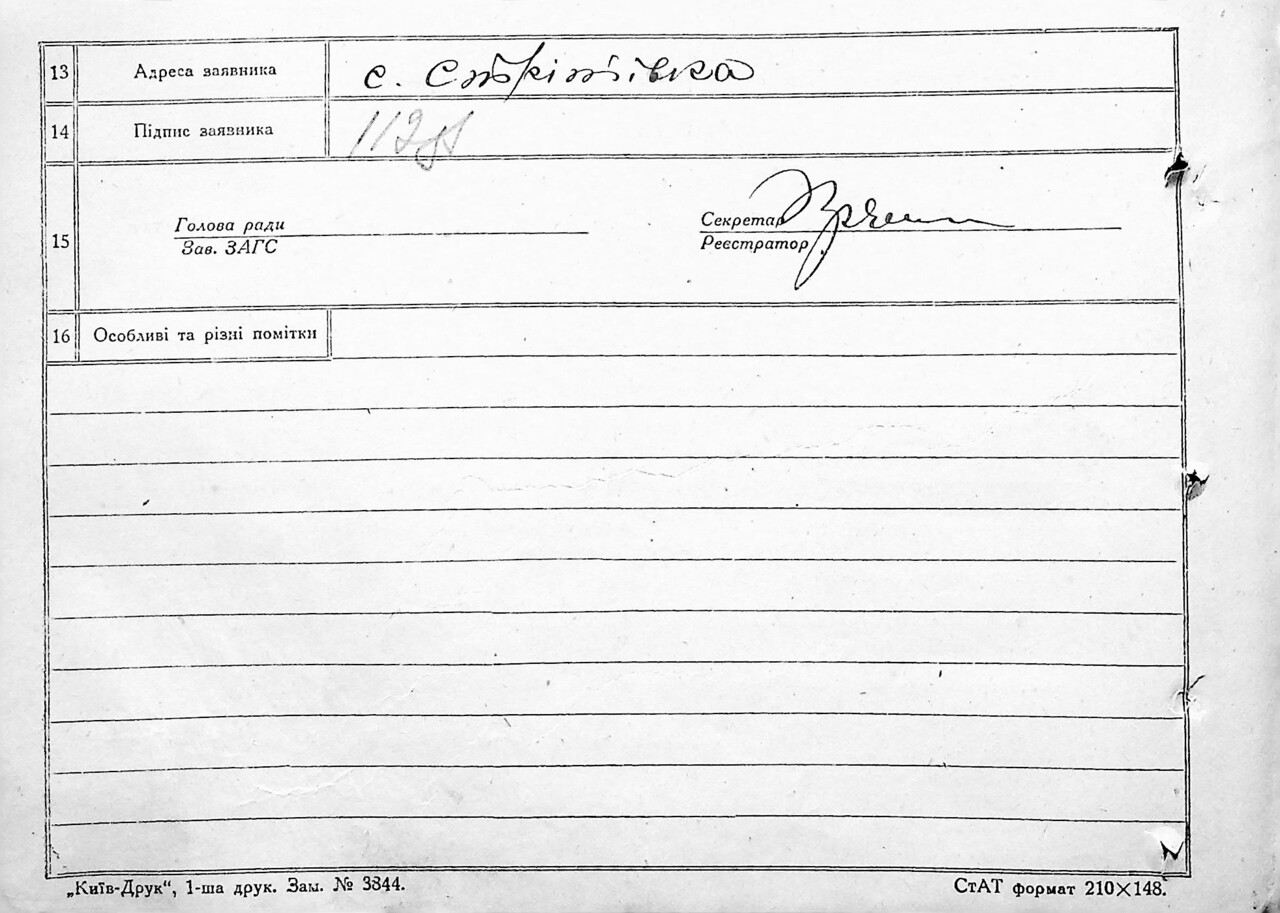 13 Адреса заявника с.
14 Підпис заявника
15 Голова ради Секретар
Зав. ЗАГС Реєстратор
16 Особливі та різні помітки
„Київ-Друк“, 1-ша друк. Зам. № 3344. СтАТ формат 210×148.